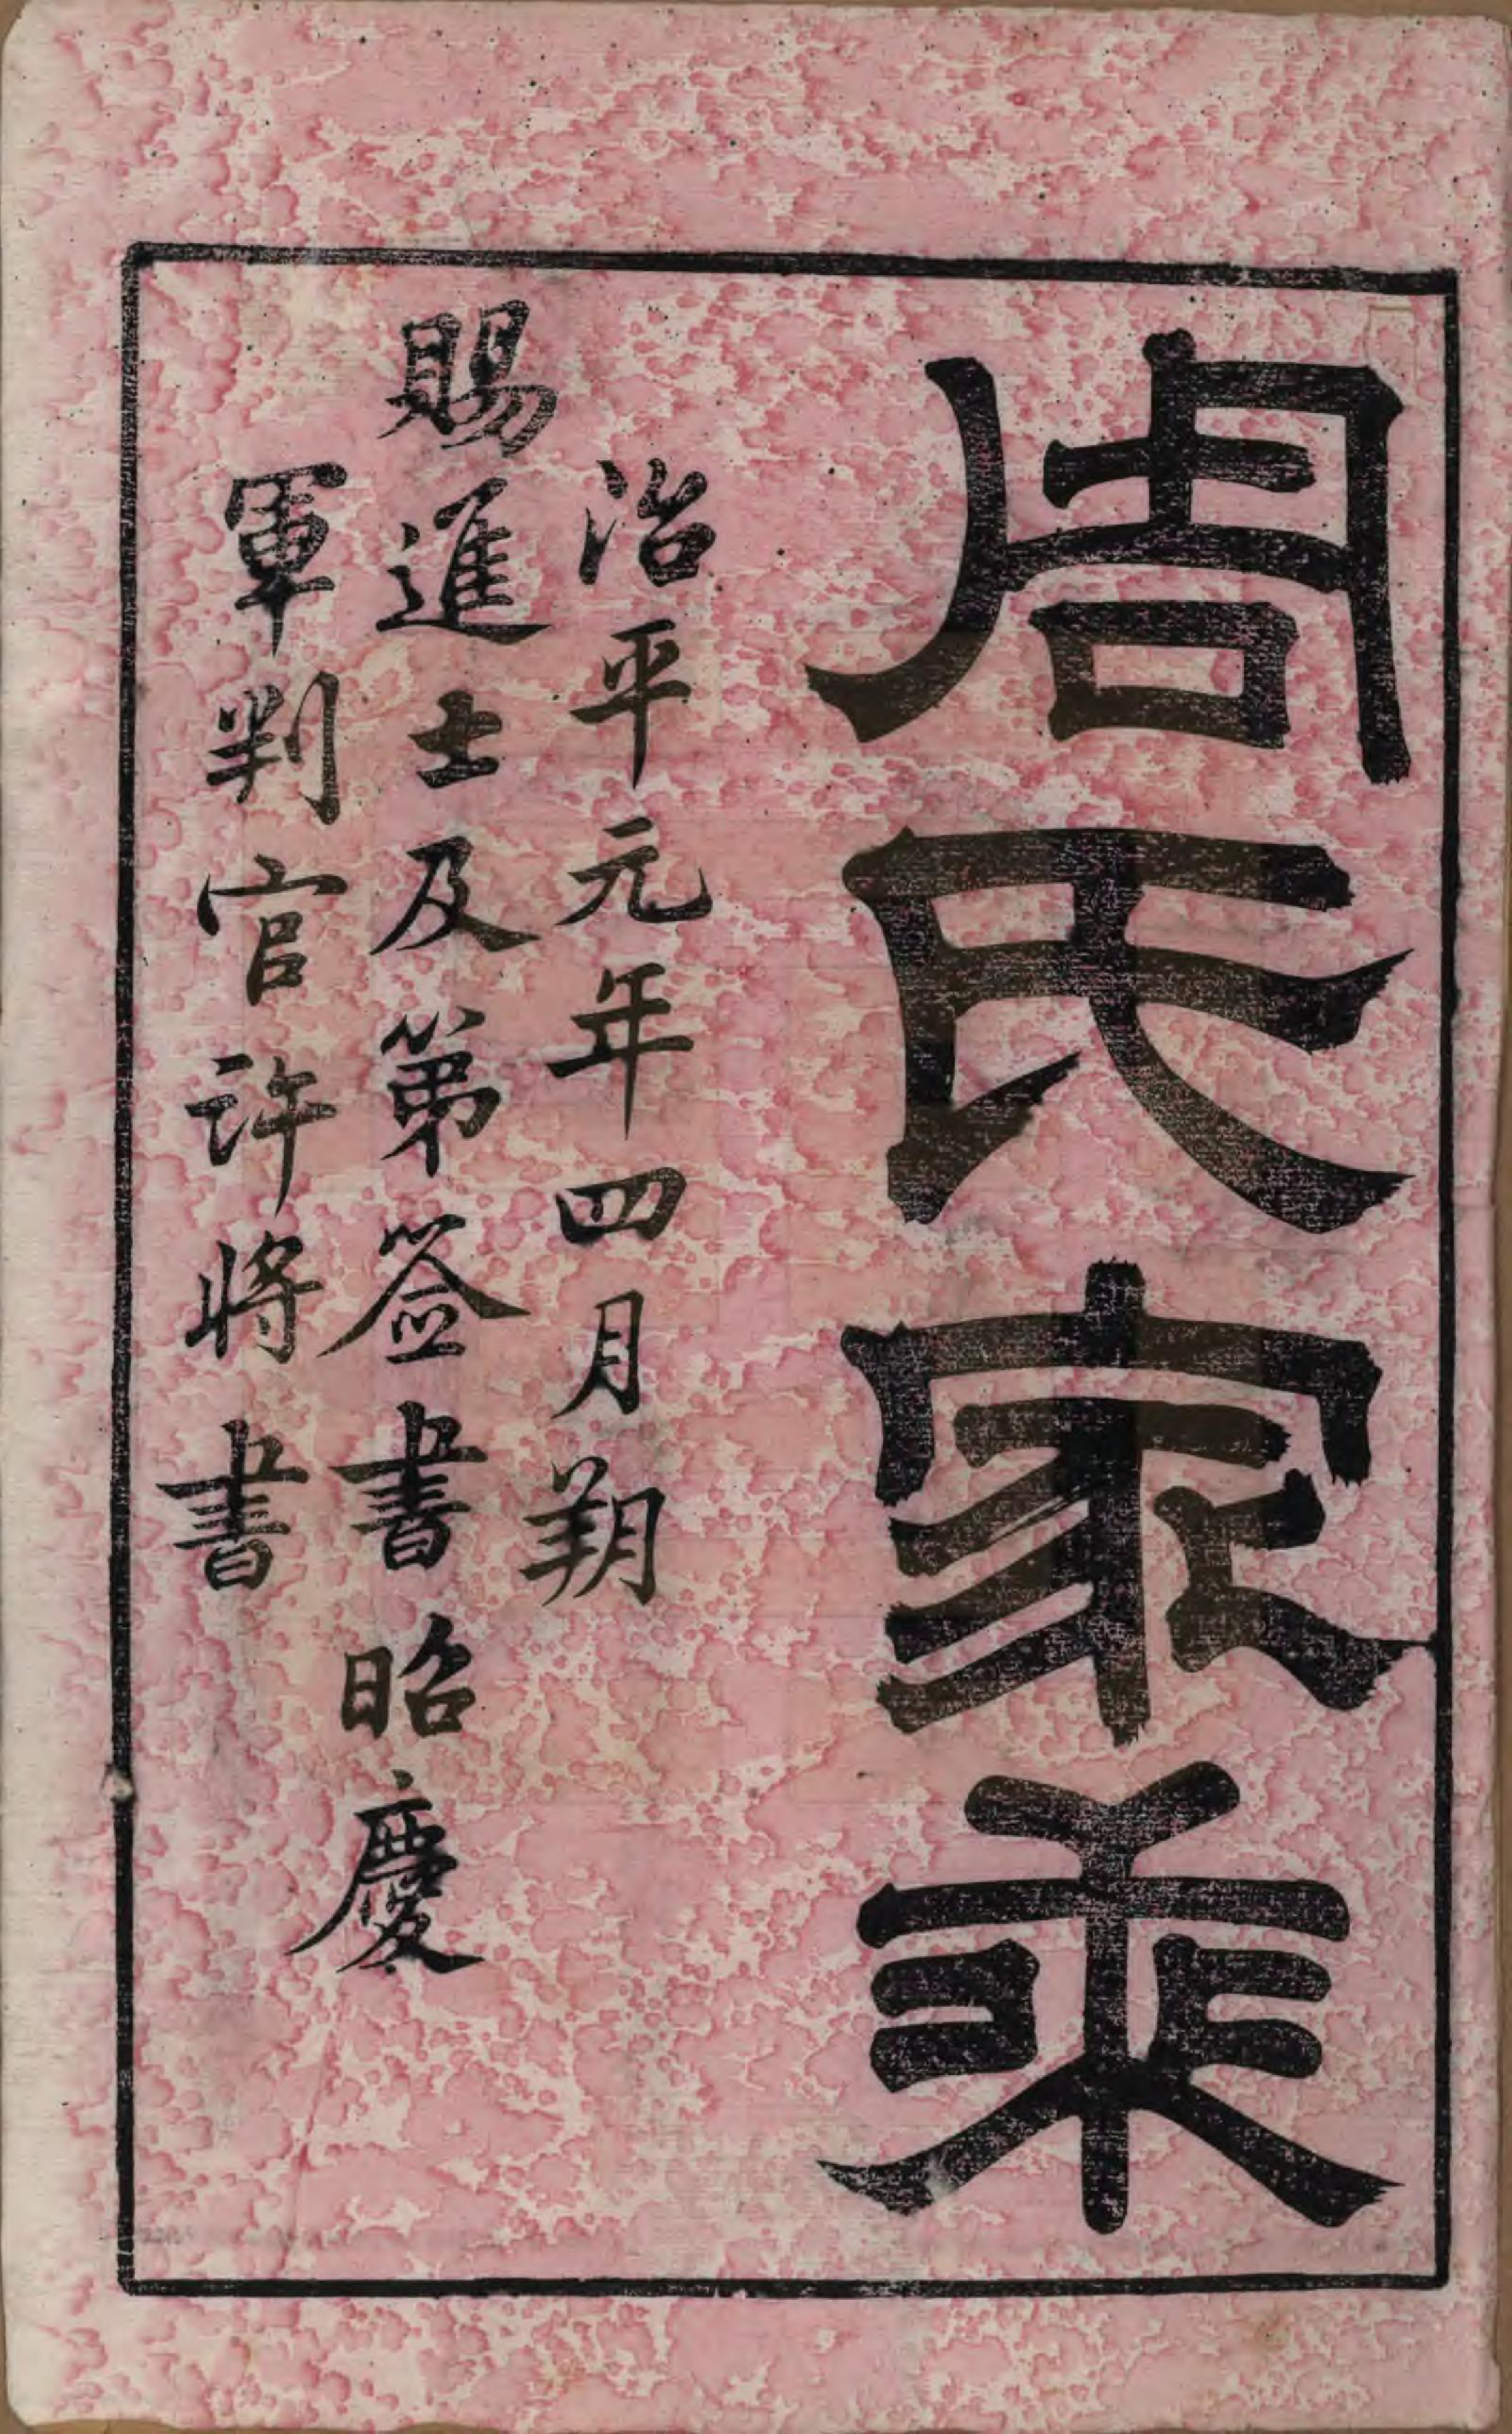 周氏家乘
治平元年四月朔
賜進士及第簽書昭慶
軍判官許將書